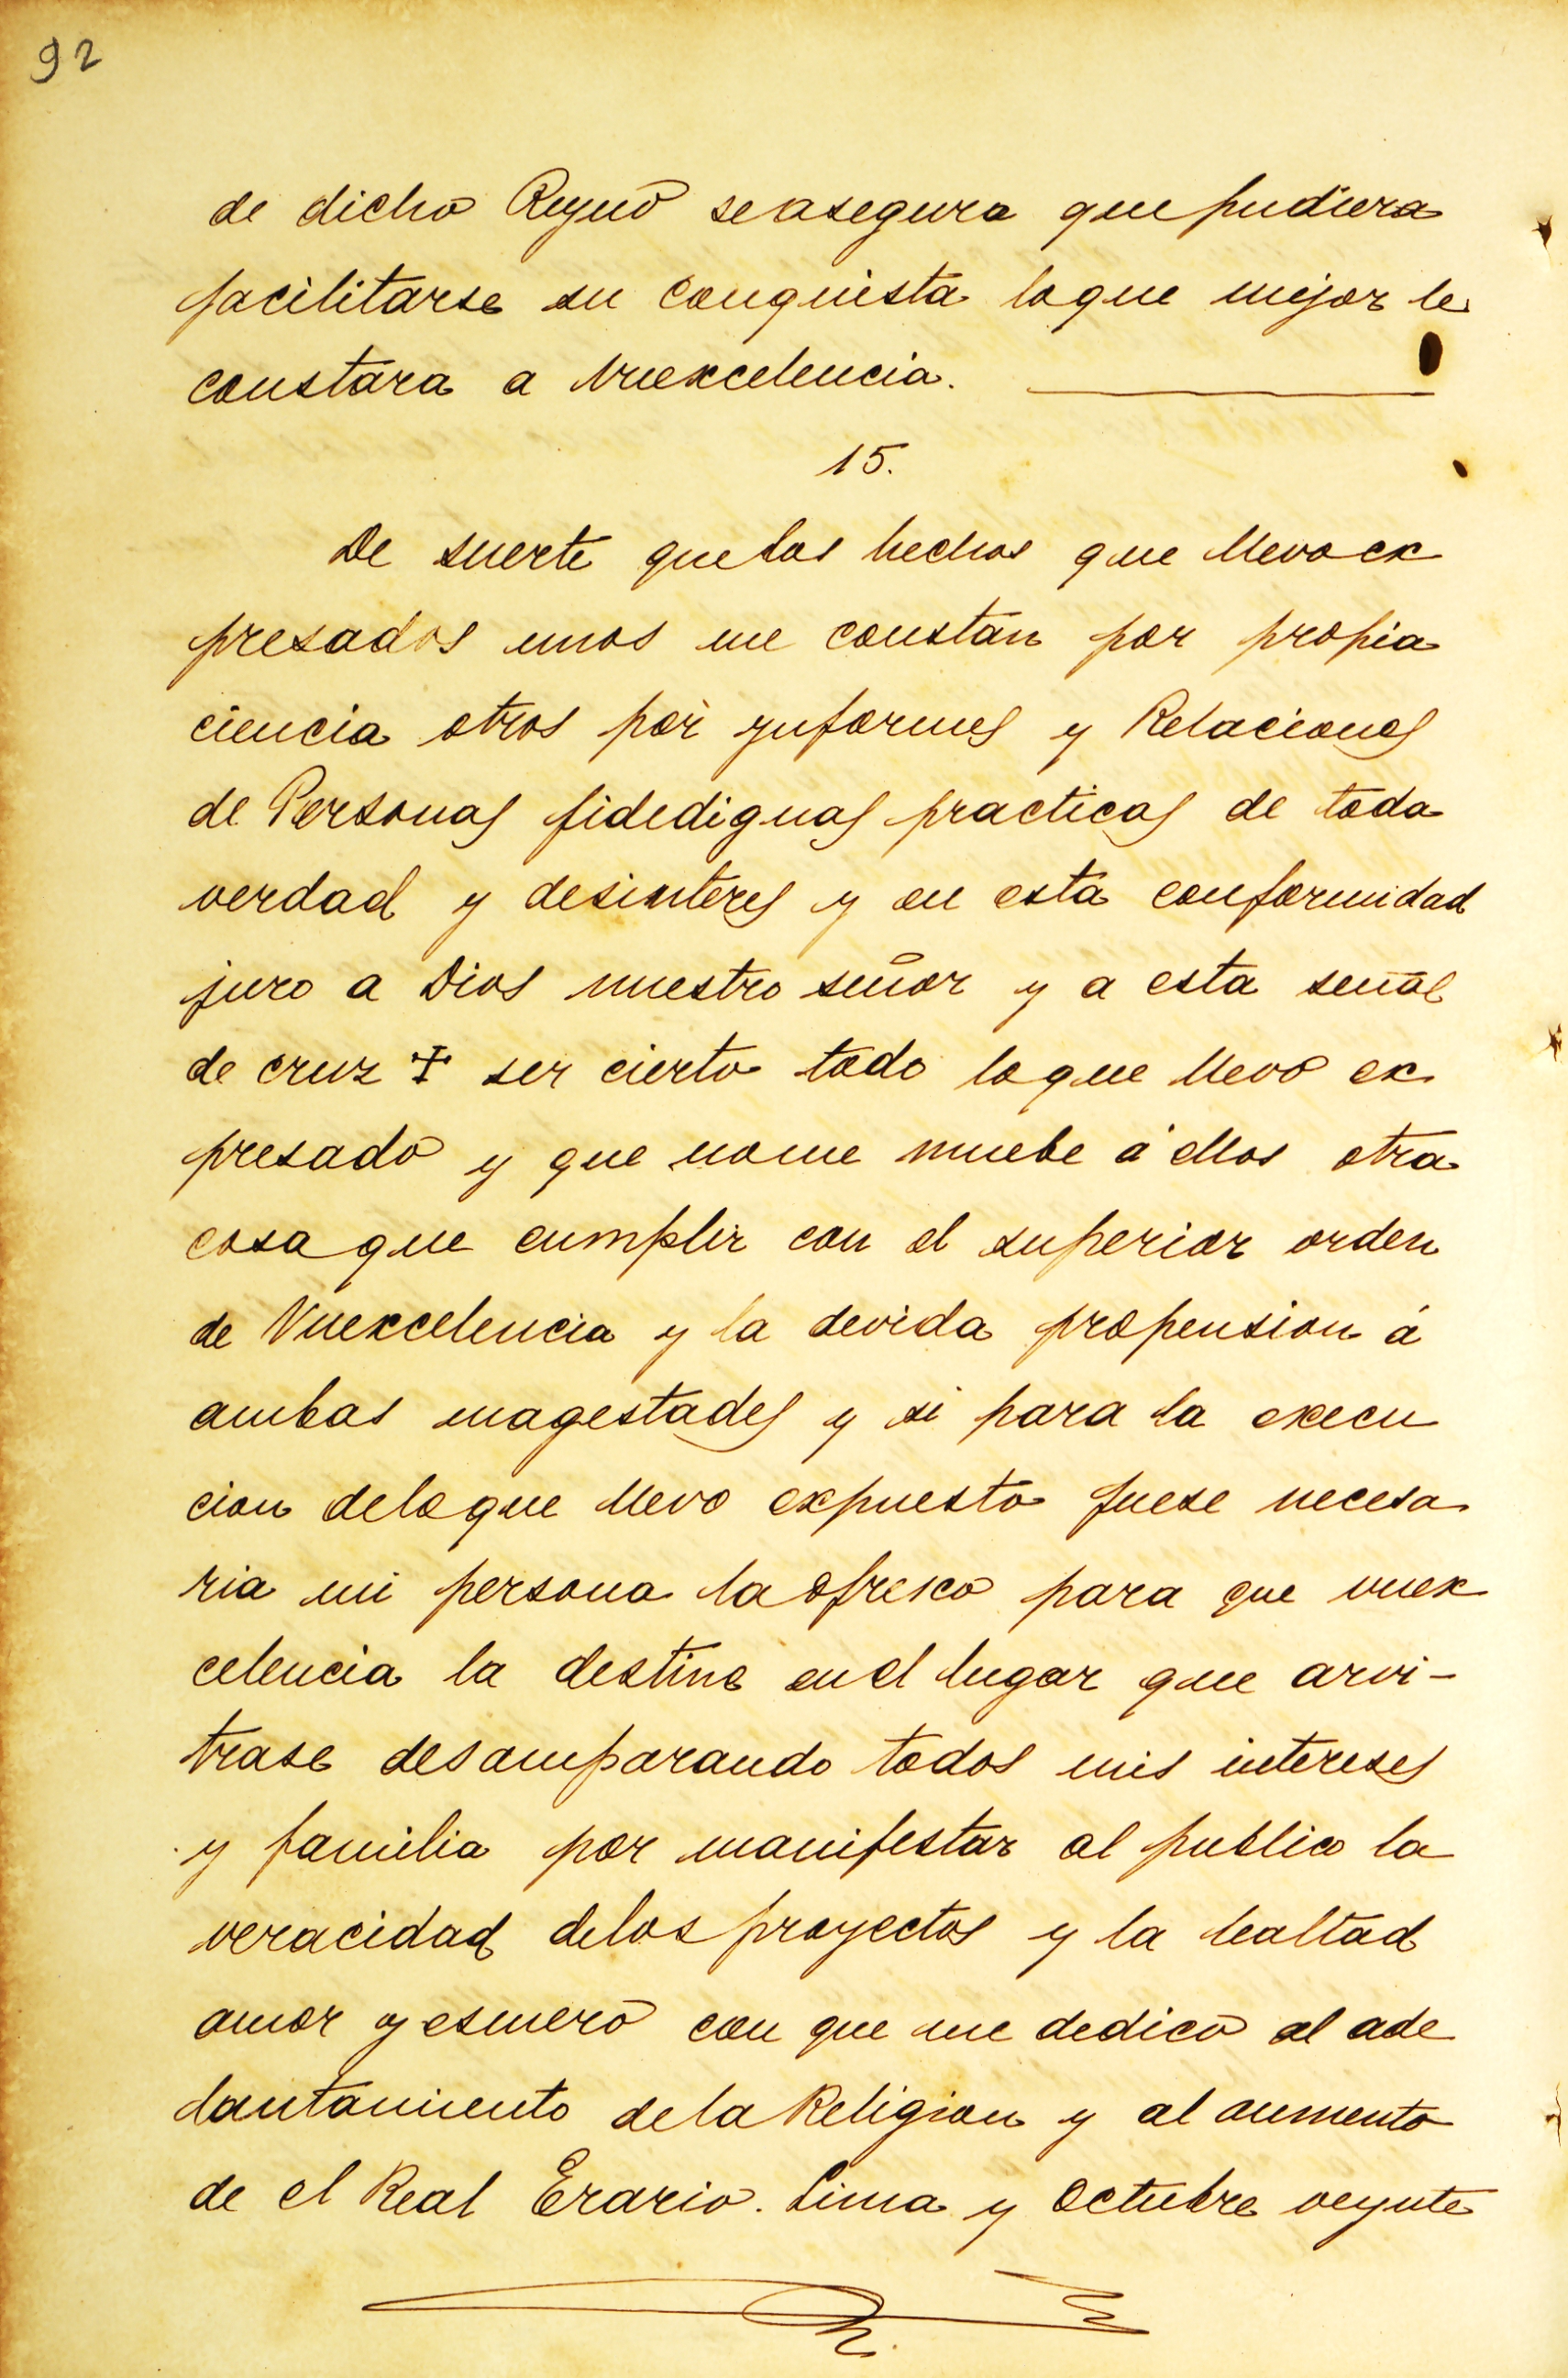 92
de dicho Reyno seasegura que pudiera
facilitarse su conquista loque mejor le
constara a Vuexcelencia.
15.
De suerte que los hechos que llevo ex
presados unos me constan por propia
ciencia otros por ynformes y Relaciones
de Personas fidedignas practicas de toda
verdad y desinteres y en esta conformidad
juro a Dios nuestro señor y a esta señal
de cruz ✝ ser cierto todo loque llevo ex
presado y que nome muebe á ellos otra
cosa que cumplir con el superior orden
de Vuexcelencia y la devida propension á
ambas magestades y si para la execu
cion deloque llevo expuesto fuese necesa
ria mi persona la ofresco para que vuex
celencia la destine en el lugar que arvi-
trase desamparando todos mis intereses
y familia por manifestar al publico la
veracidad delos proyectos y la lealtad
amor y esmero con que me dedico al ade
lantamiento dela Religion y al aumento
de el Real Erario. Lima y Octubre veynte